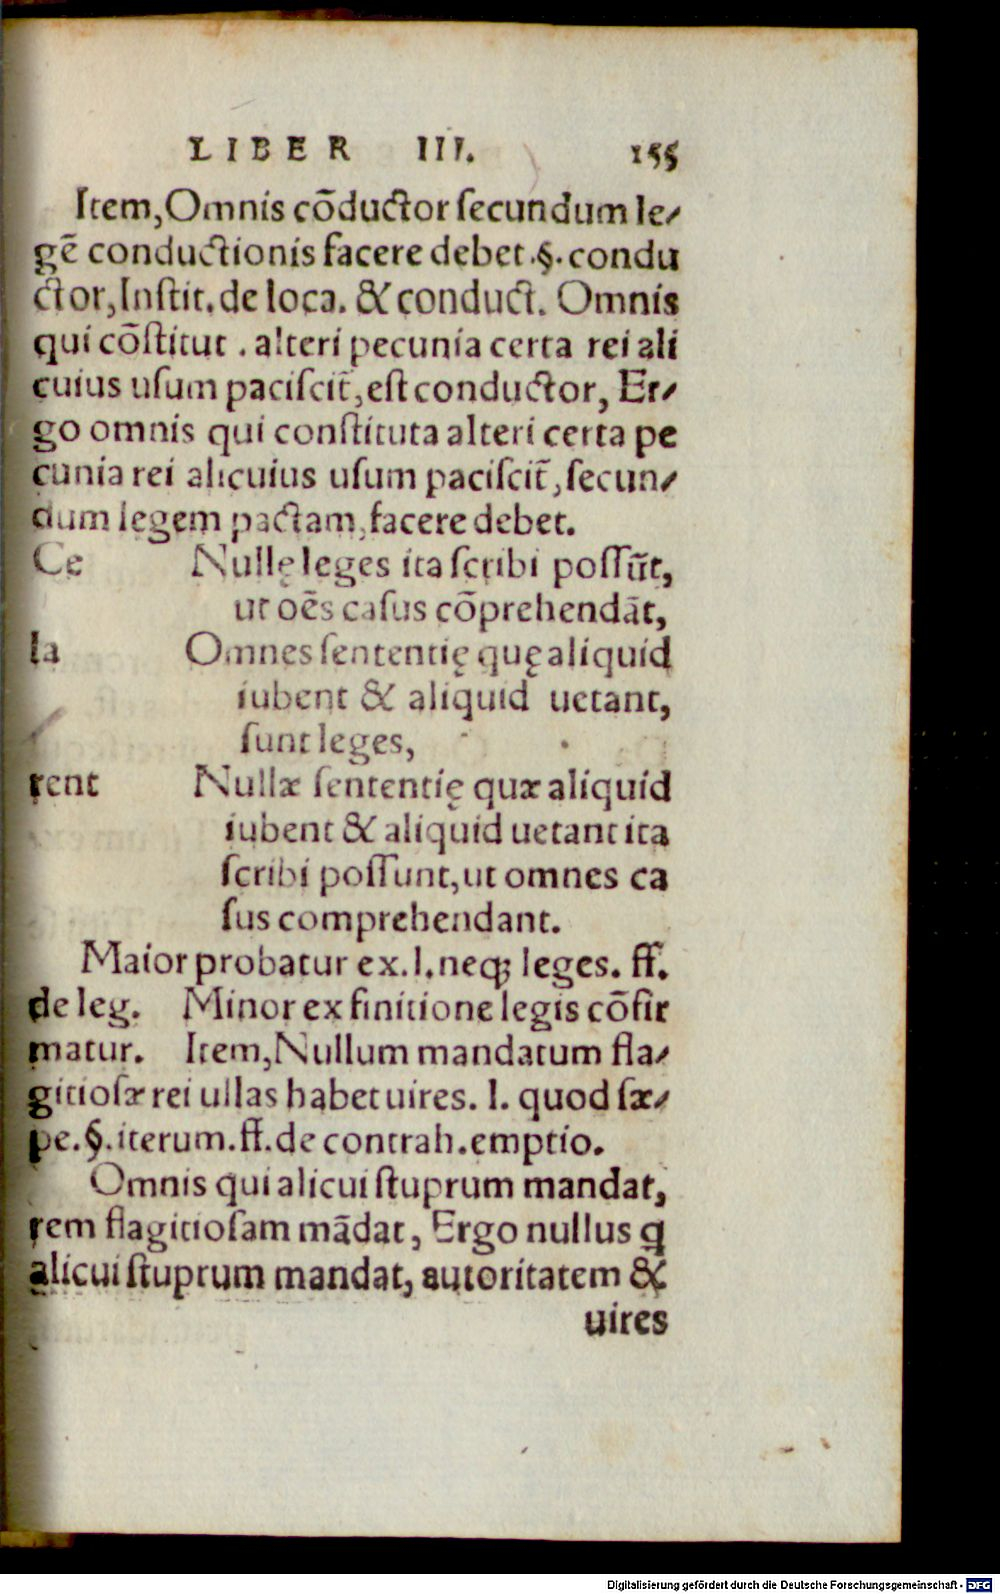 LIBER III. 155
Item,Omnis cōductor ſecundum le⸗
gē conductionis facere debet.§.condu
ctor,Inſtit.de loca. & conduct. Omnis
qui cōſtitut . alteri pecunia certa rei ali
cuius uſum paciſcit̃,eſt conductor, Er⸗
go omnis qui conſtituta alteri certa pe
cunia rei alicuius uſum paciſcit̃,ſecun⸗
dum legem pactam,facere debet.
Ce Nullę leges ita ſcribi poſſūt,
ut oēs caſus cōprehendāt,
la Omnes ſententię quę aliquid
iubent & aliquid uetant,
ſunt leges,
rent Nullæ ſententię quæ aliquid
iubent & aliquid uetant ita
ſcribi poſſunt,ut omnes ca
ſus comprehendant.
Maior probatur ex.l.neqꝫ leges. ff.
de leg. Minor ex finitione legis cōfir
matur. Item,Nullum mandatum fla⸗
gitioſæ rei ullas habet uires. l. quod ſæ⸗
pe.§.iterum.ff.de contrah.emptio.
Omnis qui alicui ſtuprum mandat,
rem flagitioſam mādat, Ergo nullus q̃
alicui ſtuprum mandat, autoritatem &
uires
Digitalisierung gefördert durch die Deutsche Forschungsgemeinschaft - DFG